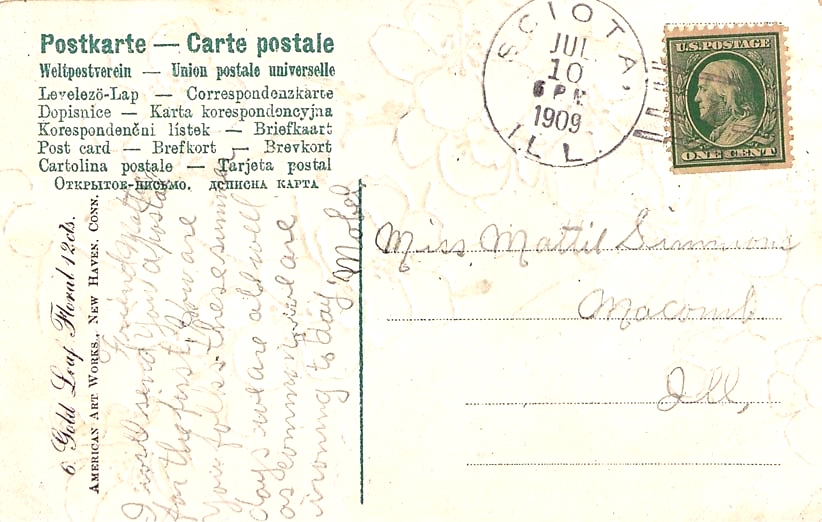 Postkarte — Carte postale
Weltpostverein — Union postale universelle
Levelezö-Lap — Correspondenzkarte
Dopisnice — Karta korespondoncyjna
Korespondenčni lístek — Briefkaart
Post card — Brefkort — Brevkort
Cartolina postale — Tarjeta postal
Открытое письмо. дописна карта
SCIOTA,
JUL
10
6 PM
1909
ILL
U.S. POSTAGE
ONE CENT
Miss Mattie Simmons
Macomb
Ill,
6 Gold Leaf Floral 12 cts.
AMERICAN ART WORKS., NEW HAVEN, CONN.
Friend Mattie
I will send you a postal
for the first How are
you folks these summer
days we are all well
as common we are
ironing to day. Mabel